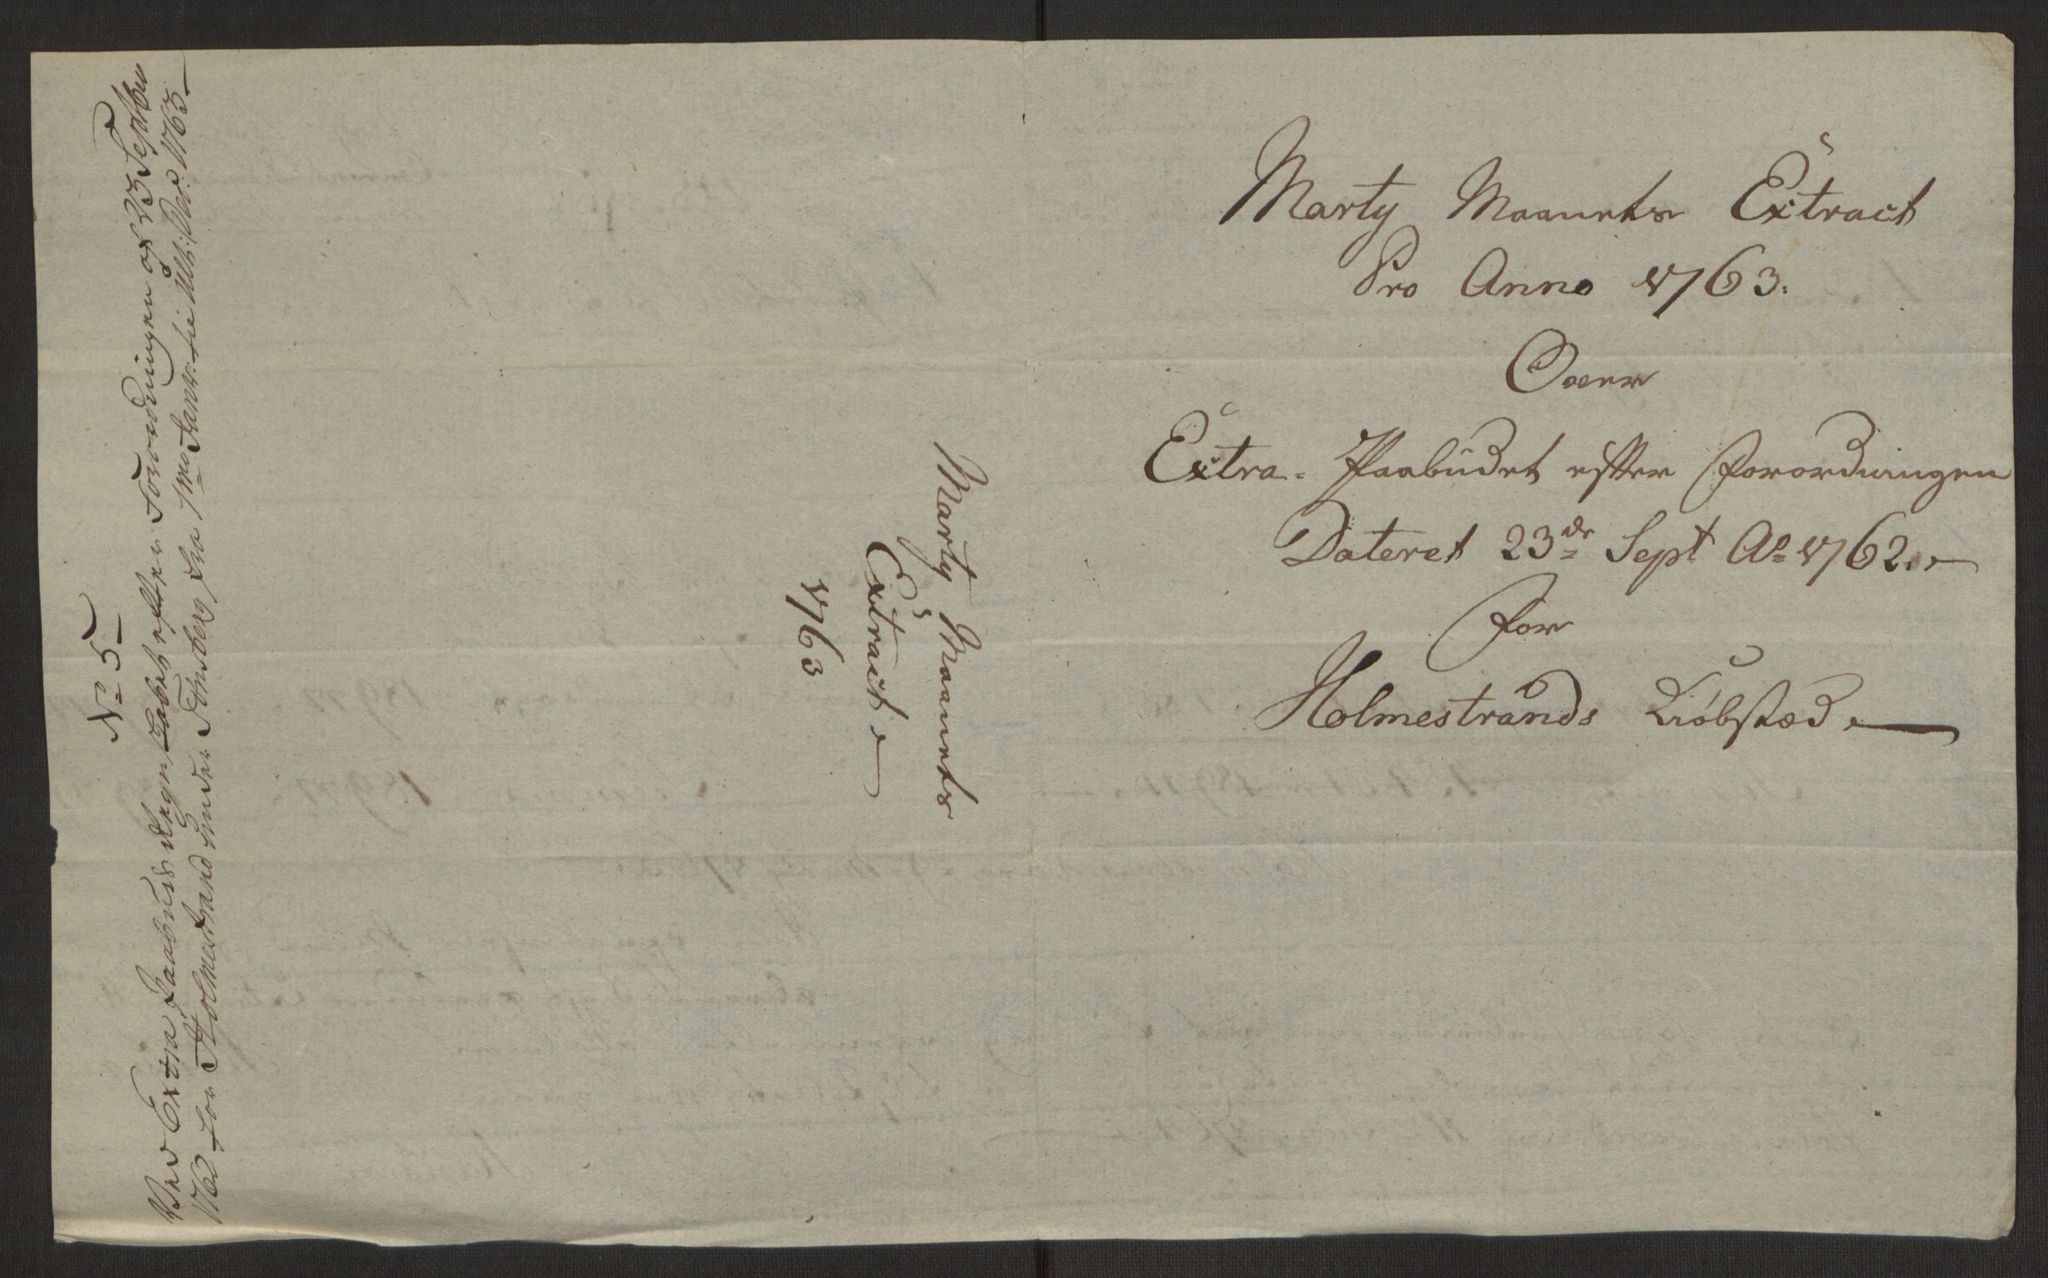 No 5
Ved Extra Paabuds Regnskabet efter Forordningen af 23 Septbr
1762 for Holmestrand under Tønsberg fra 1mo Janr: til Ult: Dec: 1763
Marty Maanets
Extract
1763
Marty Maanets Extract
Pro Anno 1763.
Over
Extra-Paabudet efter Forordningen
Dateret 23de Sept Ao 1762.
For
Holmestrands Kiöbstæd